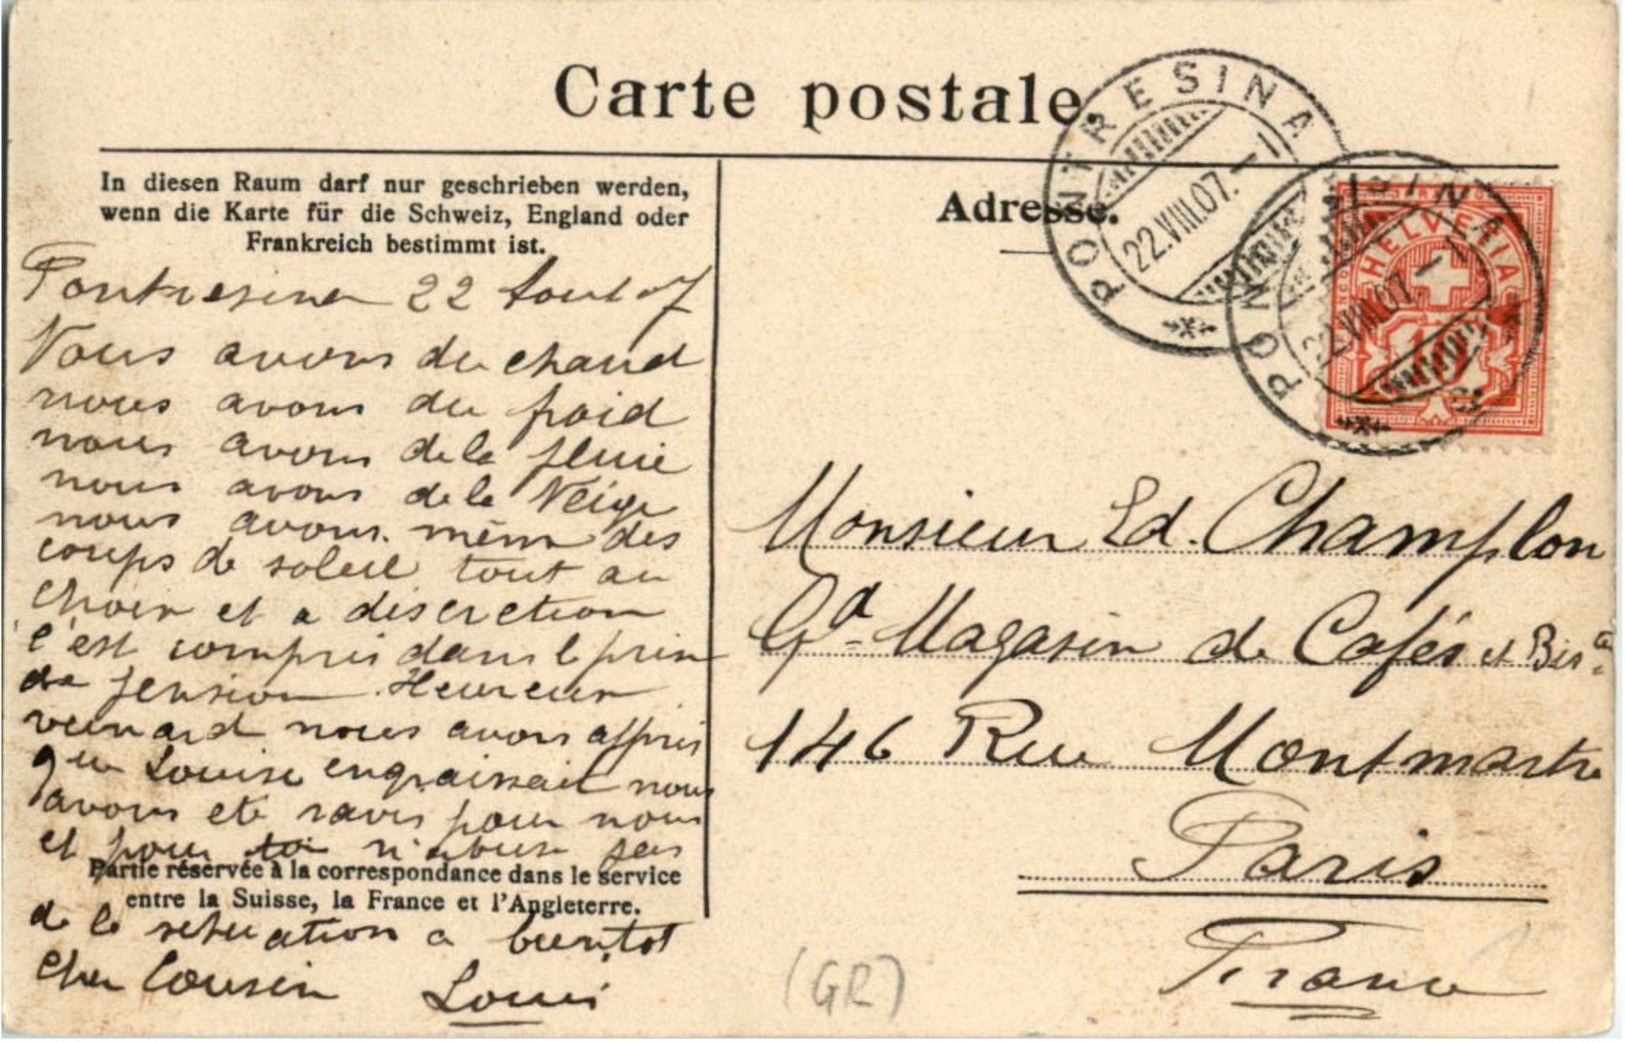 Carte postale
PONTRESINA
22.VIII.07.–1
PONTRESINA
22.VIII.07.–1
HELVETIA
10
In diesen Raum darf nur geschrieben werden,
wenn die Karte für die Schweiz, England oder
Frankreich bestimmt ist.
Pontresina 22 Aout 07
Nous avons du chaud
nous avons du froid
nous avons de la pluie
nous avons de la Neige
nous avons même des
coups de soleil tout au
choix et a discretion
c'est compris dans le prix
de pension. Heureux
veinard nous avons appris
que Louise engraissait nous
avons eté ravis pour nous
et pour toi n'abuse pas
Partie réservée à la correspondance dans le service
entre la Suisse, la France et l'Angleterre.
de la situation a bientot
cher Cousin Louis
Adresse.
Monsieur Ed. Champlon
Gd Magasin de Cafés et
146 Rue Montmartre
Paris
France
(GR)